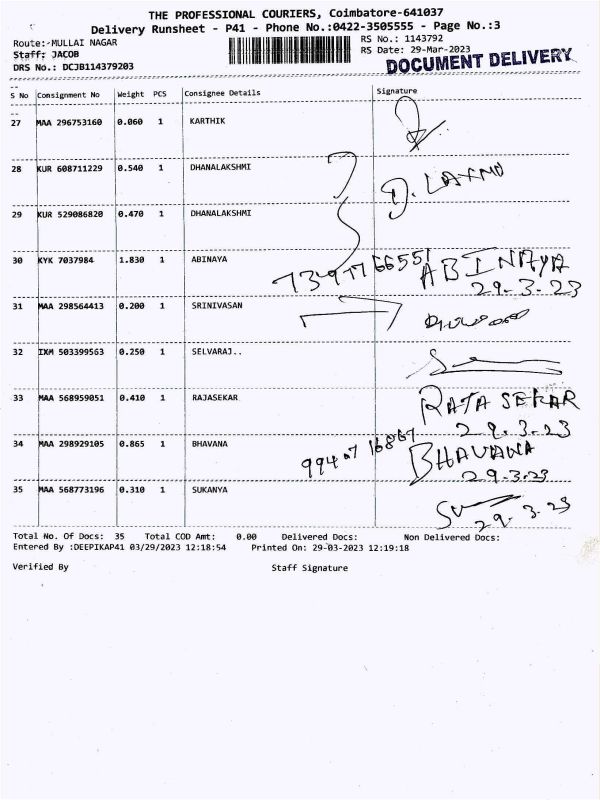 THE PROFESSIONAL COURIERS, Coimbatore-641037
Delivery Runsheet - P41 - Phone No.:0422-3505555 - Page No.:3
Route:-MULLAI NAGAR RS No.: 1143792
Staff: JACOB RS Date: 29-Mar-2023
DRS No.: DCJB114379203 DOCUMENT DELIVERY
S No Consignment No Weight PCS Consignee Details Signature
27 MAA 296753160 0.060 1 KARTHIK
28 KUR 608711229 0.540 1 DHANALAKSHMI
D. LAXMU
29 KUR 529086820 0.470 1 DHANALAKSHMI
30 KYK 7037984 1.830 1 ABINAYA ABINAYA
29.3.23
31 MAA 298564413 0.200 1 SRINIVASAN
32 IXM 503399563 0.250 1 SELVARAJ..
33 MAA 568959051 0.410 1 RAJASEKAR RAJA SEKAR
29.3.23
34 MAA 298929105 0.865 1 BHAVANA BHAVANA
29.3.23
35 MAA 568773196 0.310 1 SUKANYA
29.3.23
Total No. Of Docs: 35 Total COD Amt: 0.00 Delivered Docs: Non Delivered Docs:
Entered By :DEEPIKAP41 03/29/2023 12:18:54 Printed On: 29-03-2023 12:19:18
Verified By Staff Signature